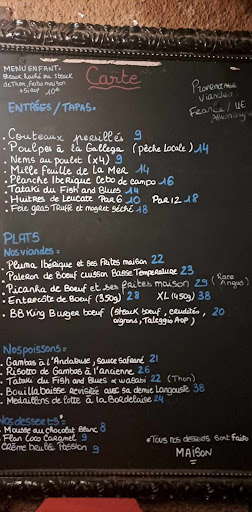 MENU ENFANT:
Steack haché ou steack
de Thon, Frites maison
+ Sirop 10€
Carte
Provenance
Viandes:
France / UE
Allemagne
ENTRÉES / TAPAS:
. Couteaux persillés 9
. Poulpes à la Gallega (pêche locale) 14
. Nems au poulet (x4) 9
. Mille Feuille de La Mer 14
. Planche Iberique Cebo de campo 16
. Tataki du Fish and Blues 14
. Huitres de Leucate Par 6 10 Par 12 18
. Foie gras Truffé et magret séché 18
PLATS
Nos viandes:
. Pluma Ibérique et ses frites maison 22
. Paleron de Boeuf cuisson Basse Temperature 23
. Picanha de Boeuf et ses frites maison 29 (Race Angus)
. Entrecôte de Boeuf (350g) 28 XL (450g) 38
. BB King Burger boeuf (steack boeuf, crudités, 20
oignons, Taleggio AOP)
Nos poissons:
. Gambas à l'Andalouse, sauce safrané 21
. Risotto de Gambas à l'ancienne 26
. Tataki du Fish and Blues wasabi 22 (Thon)
. Bouillabaisse revisitée avec sa demie Langouste 38
. Medaillons de lotte à la Bordelaise 24
Nos desserts:
. Mousse au chocolat Blanc 8
. Flan Coco Caramel 9
. Crème brulée Passion 9
*Tous nos desserts sont faits
MAISON